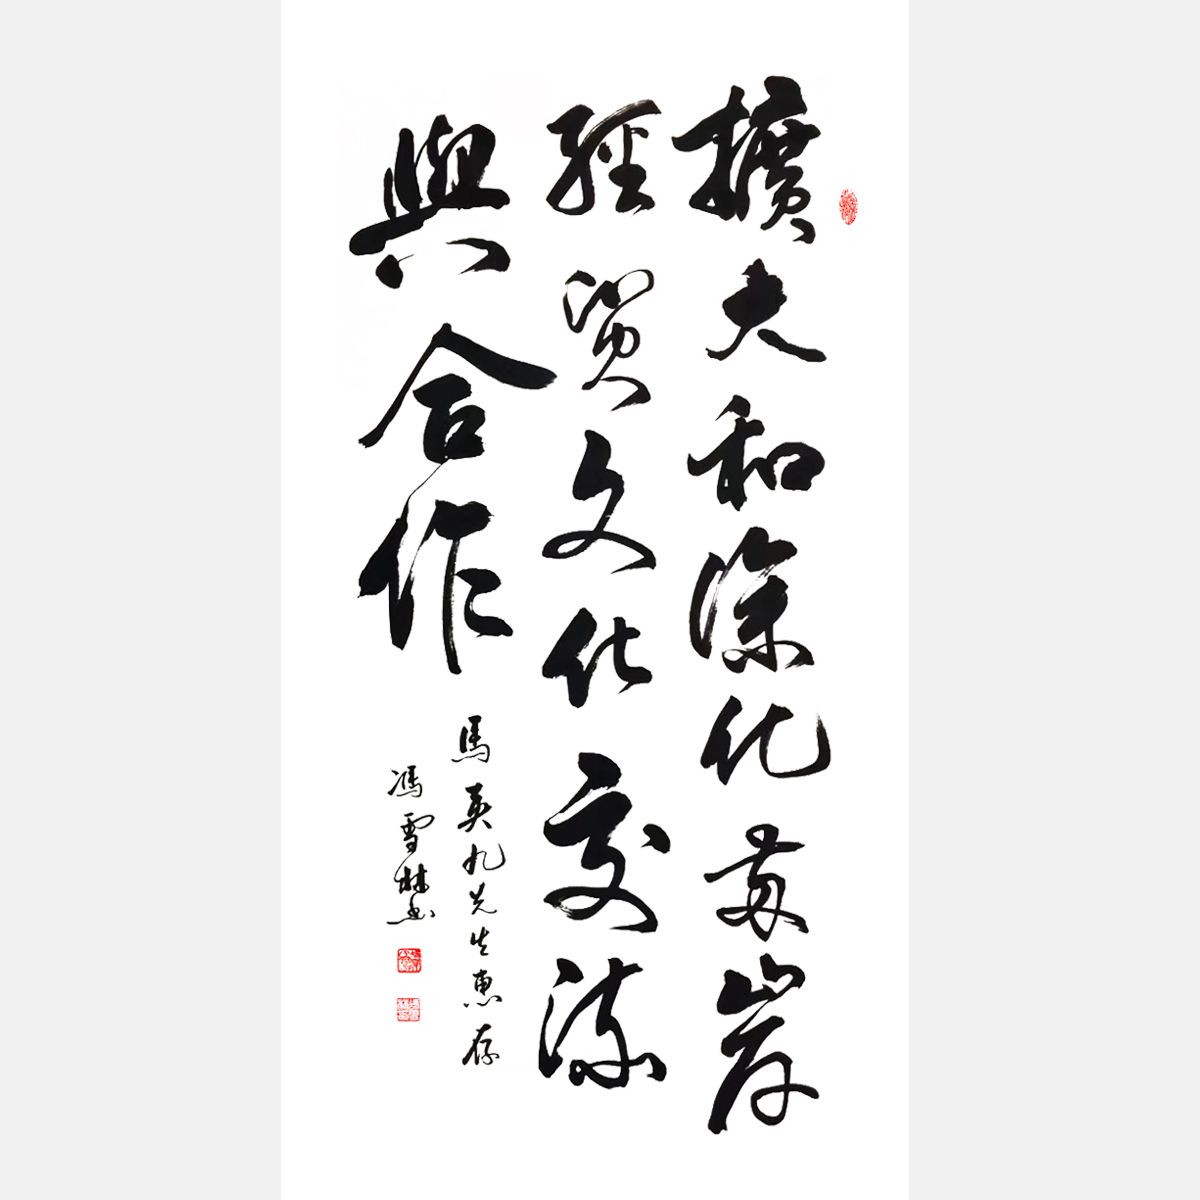 擴大和深化两岸
經貿文化交流
與合作
馬英九先生惠存
馮雪林書